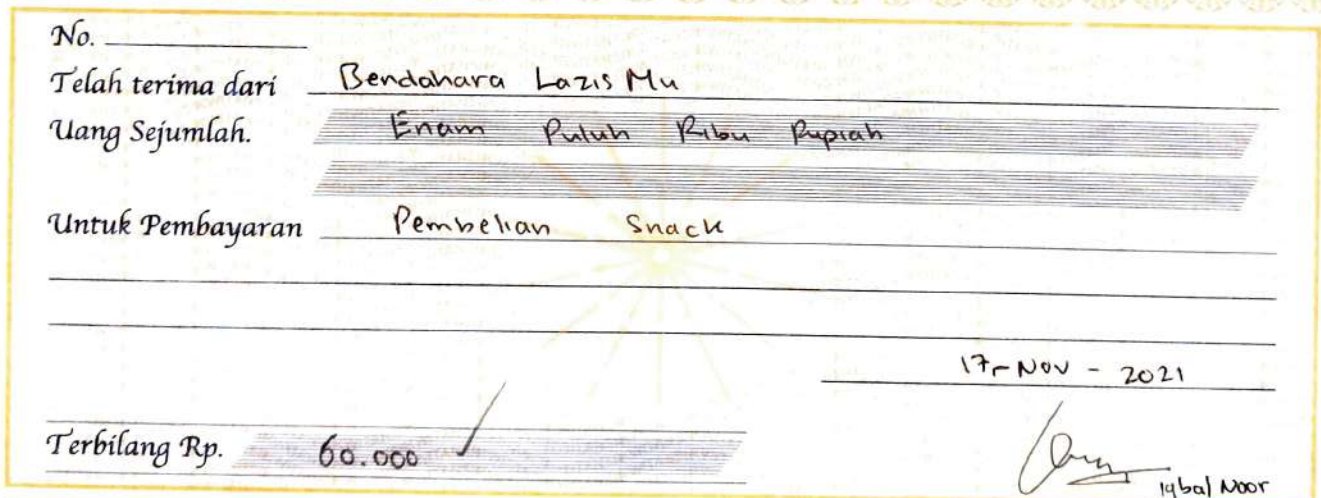 No.
Telah terima dari Bendahara Lazis Mu
Uang Sejumlah. Enam Puluh Ribu Rupiah
Untuk Pembayaran Pembelian Snack
17-Nov-2021
Terbilang Rp. 60.000
Iqbal Noor